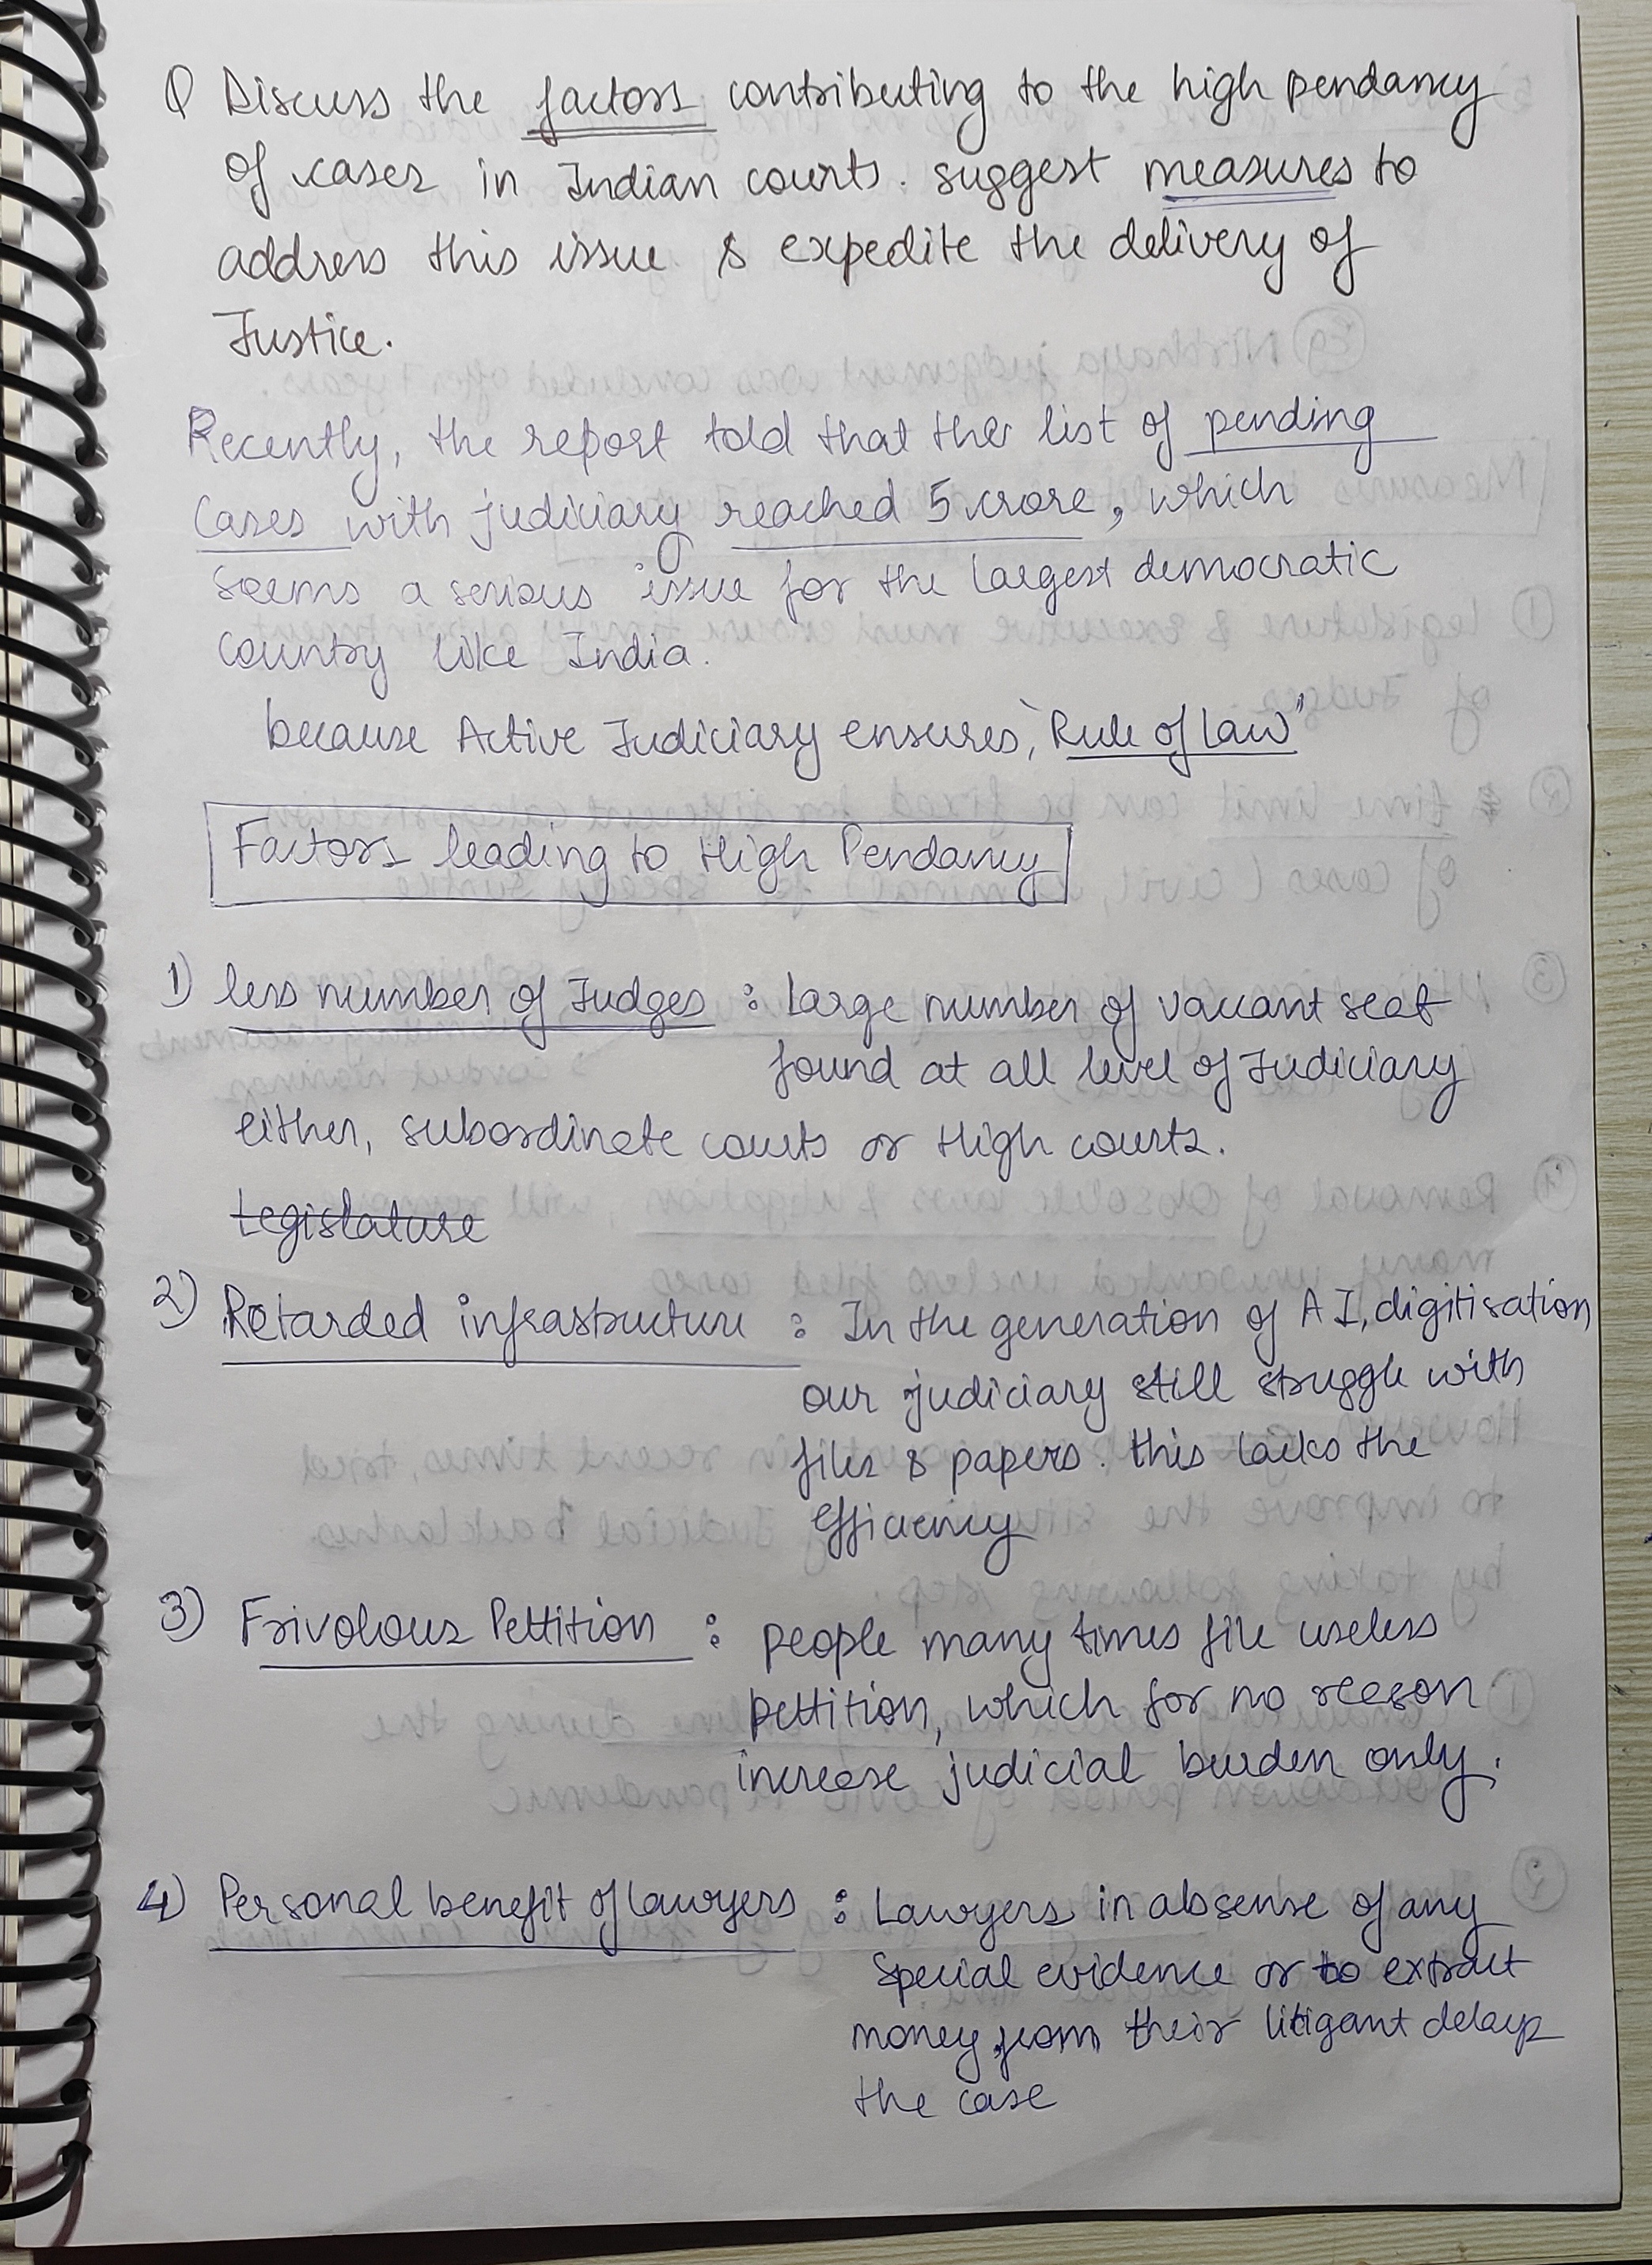 Q Discuss the factors contributing to the high pendancy
of cases in Indian courts. suggest measures to
address this issue & expedite the delivery of
Justice.
Recently, the report told that the list of pending
cases with judiciary reached 5 crore, which
seems a serious issue for the largest democratic
country like India.
because Active Judiciary ensures, "Rule of law"
Factors leading to High Pendancy
1) less number of Judges : Large number of vaccant seat
found at all level of Judiciary
either, subordinate courts or High courts.
Legislature
2) Retarded infrastructure : In the generation of AI, digitisation
our judiciary still struggle with
files & papers. this lacks the
efficiency
3) Frivolous Pettition : people many times file useless
pettition, which for no reason
increase judicial burden only.
4) Personal benefit of lawyers : Lawyers in absense of any
special evidence or to extract
money from their litigant delays
the case